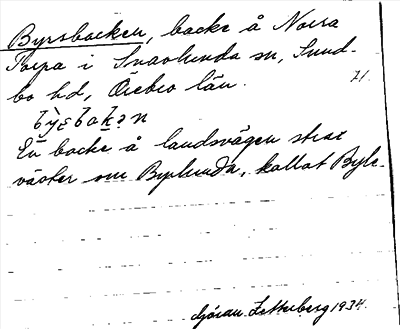 Byrsbacken, backe å Norra
Torpa i Snavlunda sn, Sund-
bo hd, Örebro län. 71.
En backe å landsvägen strax
väster om Byrlunda, kallat Byle-
Göran Zetterberg 1934.